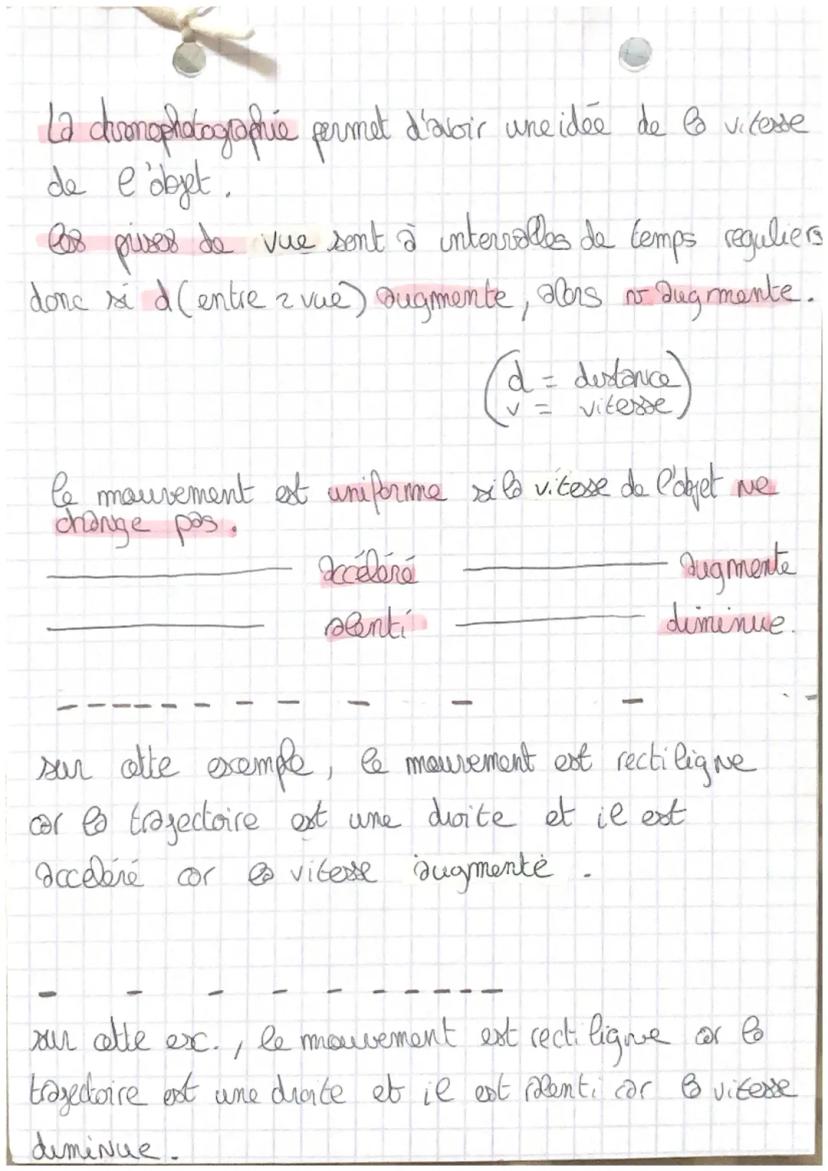 La chronophotographie permet d'avoir une idée de la vitesse
de l'objet.
Les prises de vue sont à intervalles de temps reguliers
donc si d (entre 2 vue) augmente, alors v augmente.
(d = distance
v = vitesse)
le mouvement est uniforme si la vitesse de l'objet ne
change pas.
accéléré augmente
ralenti diminue.
sur cette exemple, le mouvement est rectiligne
car la trajectoire est une droite et il est
accéléré car la vitesse augmente.
sur cette ex., le mouvement est rectiligne car la
trajectoire est une droite et il est ralenti car la vitesse
diminue.